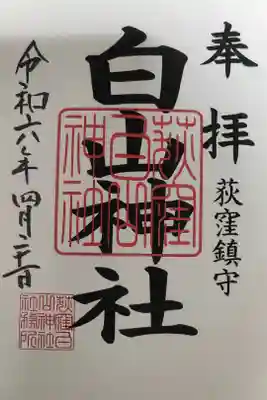 奉拝
荻窪鎮守
白山神社
荻窪
白山
神社
令和六年四月
荻窪白
山神社
社務所